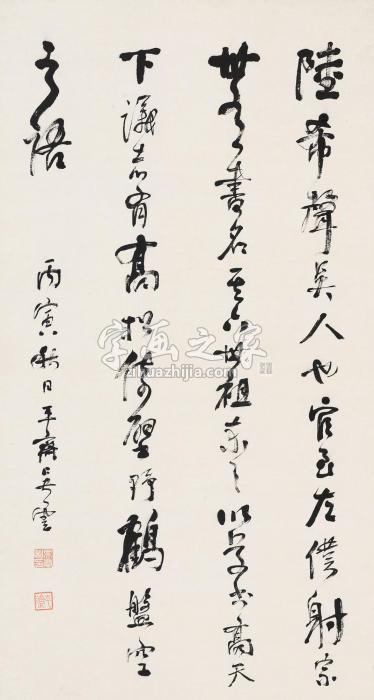 陸希聲吳人也官至左僕射宗
世有書名其六世祖柬之以書高天
下議者有高松倚壁野鶴盤空
之語
丙寅秋日平齋吳雲
字画之家
zihuazhijia.com